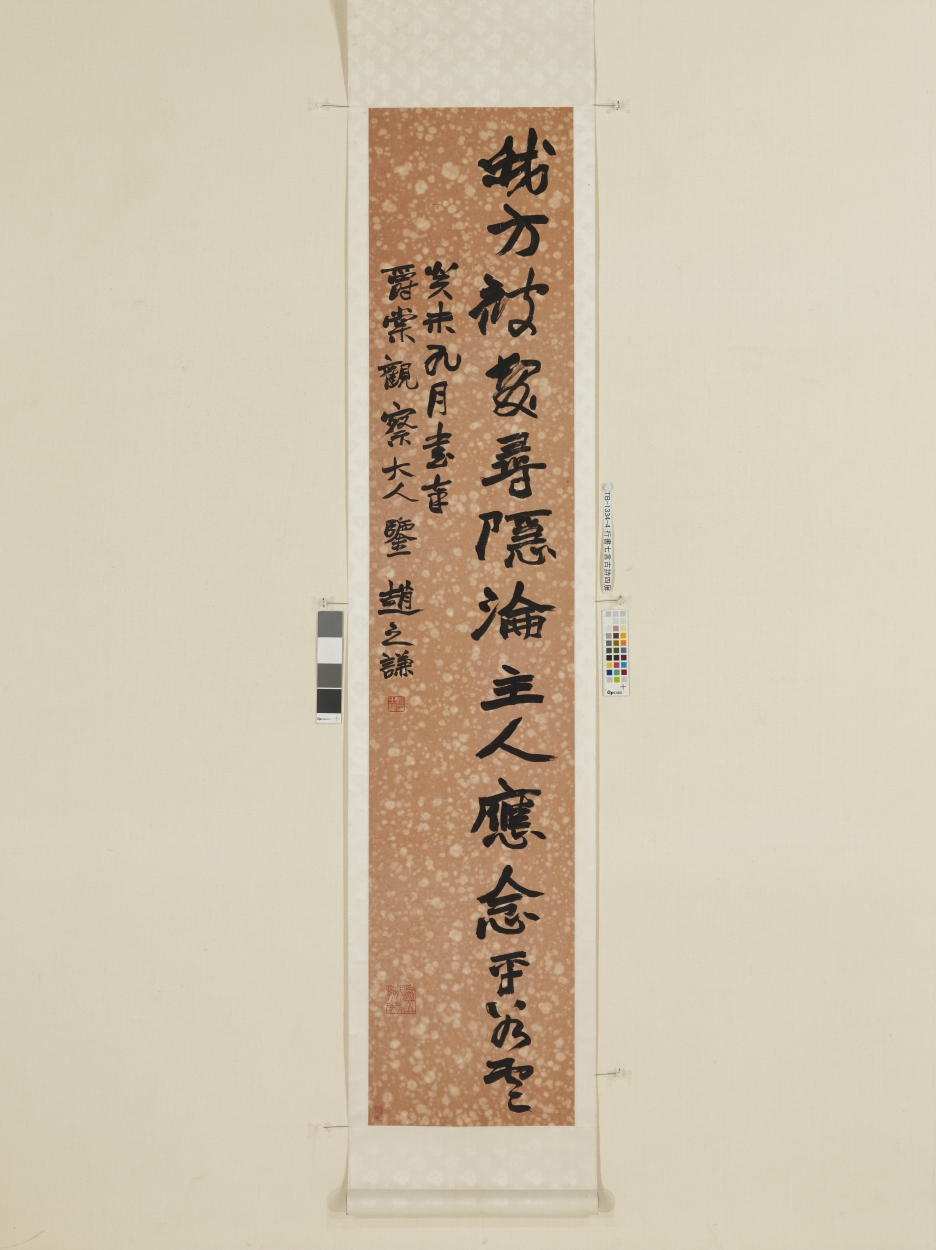 我方被髮尋隱淪主人應念平雲
癸未九月書奉
爵棠觀察大人 鑒 趙之謙
TB-1334-4 行書七言古詩四屏